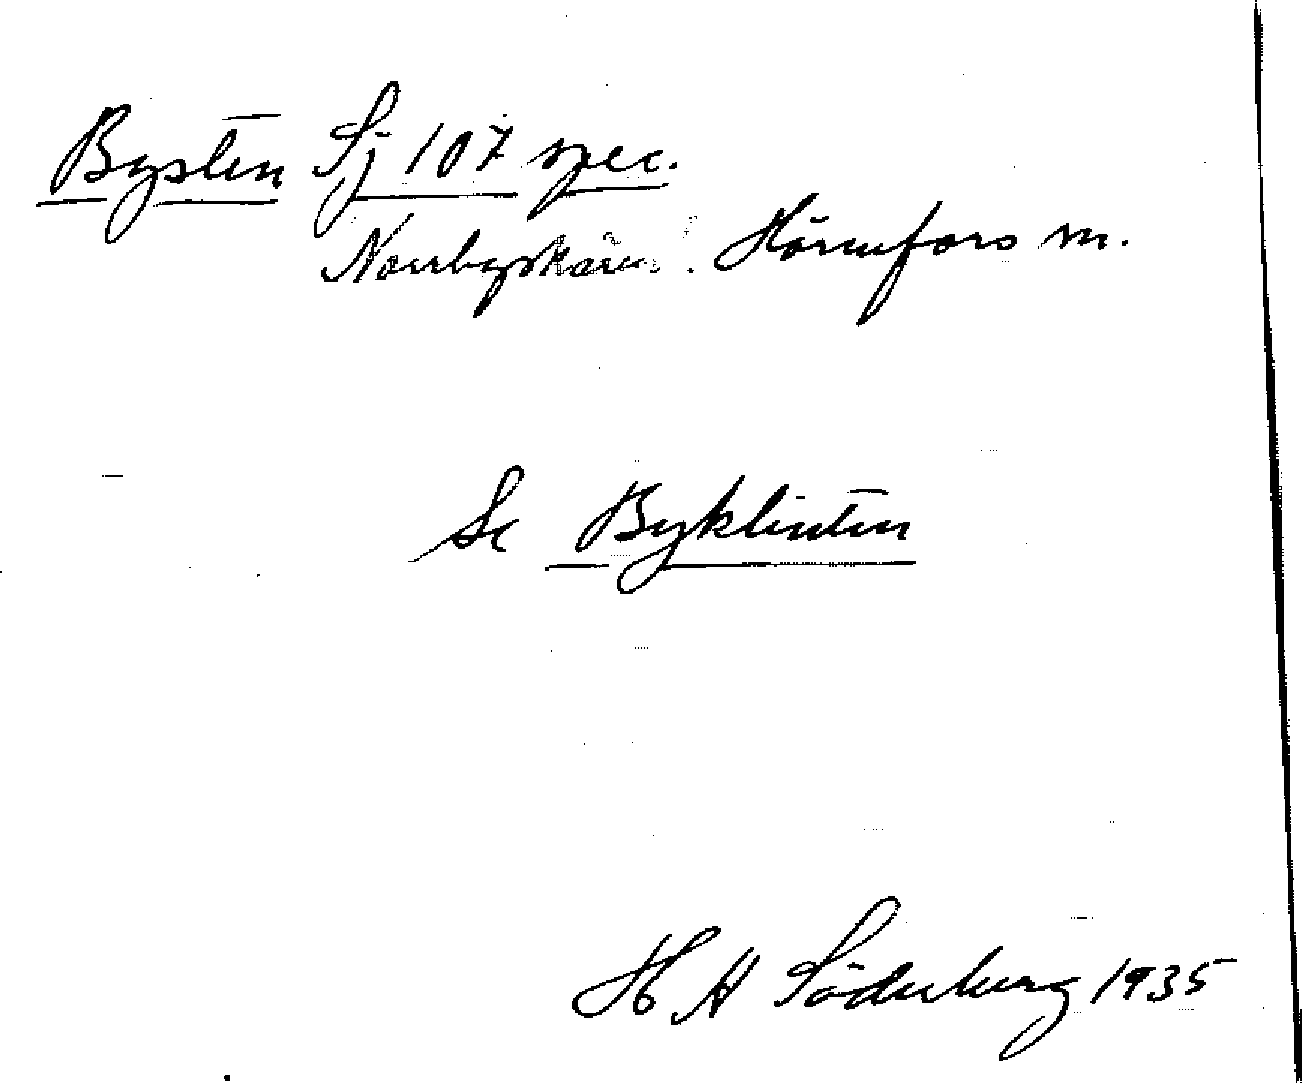 Bysten Sj 107 spec.
Norrbyskär. Hörnefors sn.
Se Byklinten
H A Söderberg 1935